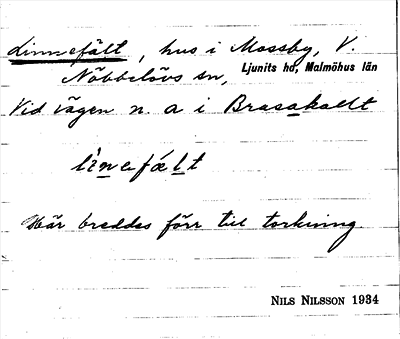 Linnefält, hus i Mossby, V.
Nöbbelövs sn, Ljunits hd, Malmöhus län
Vid vägen n. a i Brasakallt
lìnefælt
Här breddes förr till torkning
NILS NILSSON 1934